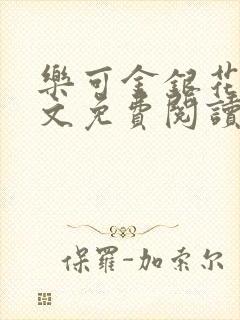 樂可金銀花
文免費閱讀
保羅-加索尔